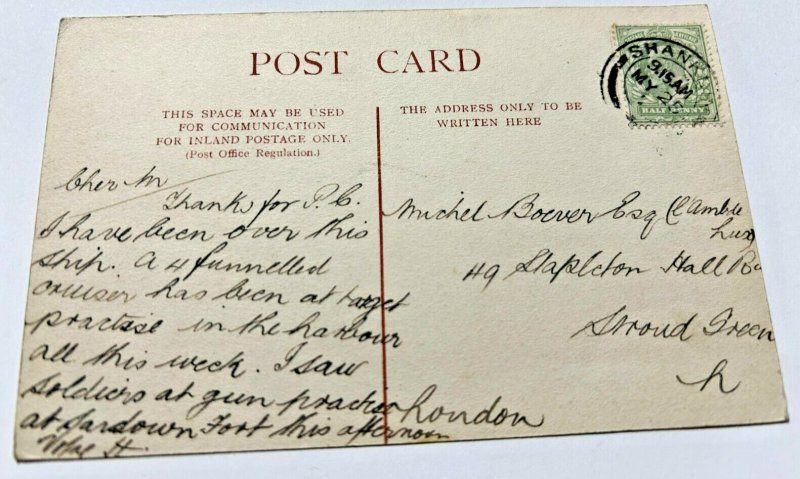 POST CARD
THIS SPACE MAY BE USED
FOR COMMUNICATION
FOR INLAND POSTAGE ONLY.
(Post Office Regulation.)
THE ADDRESS ONLY TO BE
WRITTEN HERE
SHANK
9.15 AM
MY 25
HALF PENNY
Cher M
Thanks for P.C.
I have been over this
ship. A 4 funnelled
cruiser has been at target
practise in the harbour
all this week. I saw
soldiers at gun practice
at Sandown Fort this afternoon
H.
Michel Boever Esq
Lux)
49 Stapleton Hall Rd
Stroud Green
N
London